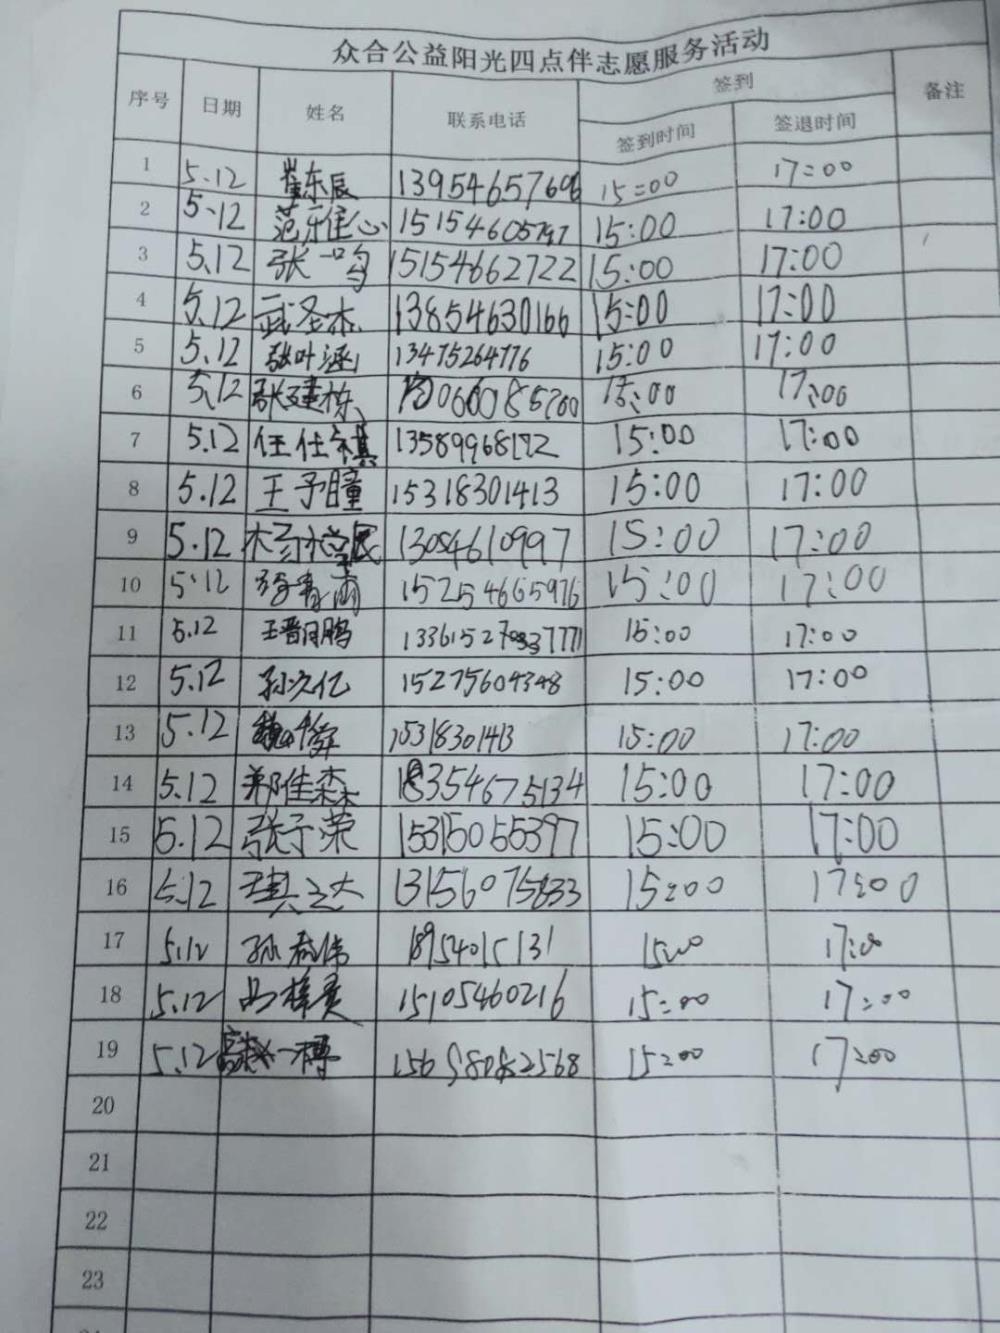 众合公益阳光四点伴志愿服务活动
序号 日期 姓名 联系电话 签到 备注
签到时间 签退时间
1 5.12 崔东辰 1395465769 15:00 17:00
2 5.12 范乐佳心 15:00 17:00
3 5.12 张一鸣 15154662722 15:00 17:00
4 5.12 武圣杰 13854630166 15:00 17:00
5 5.12 张叶涵 13475264776 15:00 17:00
6 5.12 张建栋 15:00 17:00
7 5.12 任仕祺 15:00 17:00
8 5.12 王予瞳 15318301413 15:00 17:00
9 5.12 13054610997 15:00 17:00
10 5.12 青雨 15254665976 15:00 17:00
11 5.12 鹏 15:00 17:00
12 5.12 孙亿 15275604348 15:00 17:00
13 5.12 15318301413 15:00 17:00
14 5.12 郑佳森 18354675134 15:00 17:00
15 5.12 张子荣 15315055397 15:00 17:00
16 5.12 13156075833 15:00 17:00
17 5.12 孙伟 18954015131 15:00 17:00
18 5.12 15105460216 15:00 17:00
19 5.12 一博 15:00 17:00
20
21
22
23